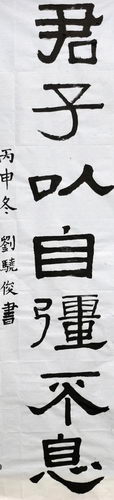 君子以自彊不息
丙申冬 劉驍俊書